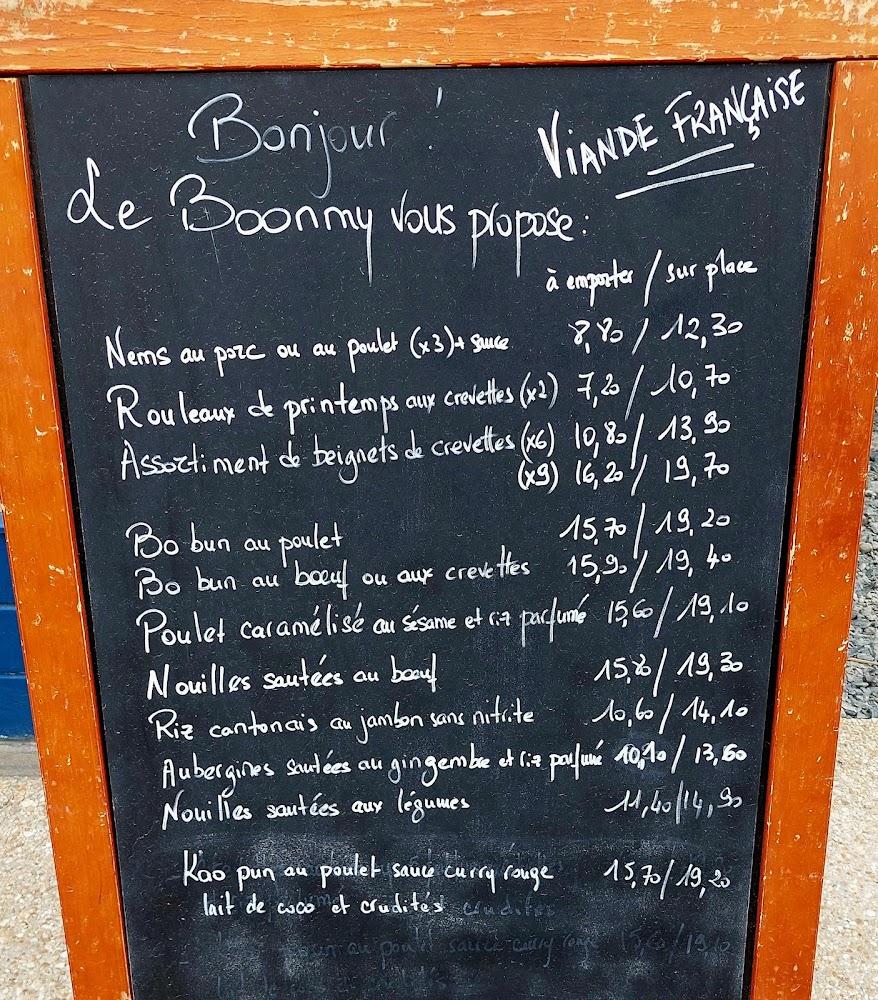 Bonjour !
VIANDE FRANÇAISE
Le Boonmy vous propose :
à emporter / sur place
Nems au porc ou au poulet (x3) + sauce 8,80 / 12,30
Rouleaux de printemps aux crevettes (x2) 7,20 / 10,70
Assortiment de beignets de crevettes (x6) 10,80 / 13,90
(x9) 16,20 / 19,70
Bo bun au poulet 15,70 / 19,20
Bo bun au bœuf ou aux crevettes 15,90 / 19,40
Poulet caramélisé au sésame et riz parfumé 15,60 / 19,10
Nouilles sautées au bœuf 15,80 / 19,30
Riz cantonais au jambon sans nitrite 10,60 / 14,10
Aubergines sautées au gingembre et riz parfumé 10,10 / 13,60
Nouilles sautées aux légumes 11,40 / 14,90
Kao pun au poulet sauce curry rouge 15,70 / 19,20
lait de coco et crudités